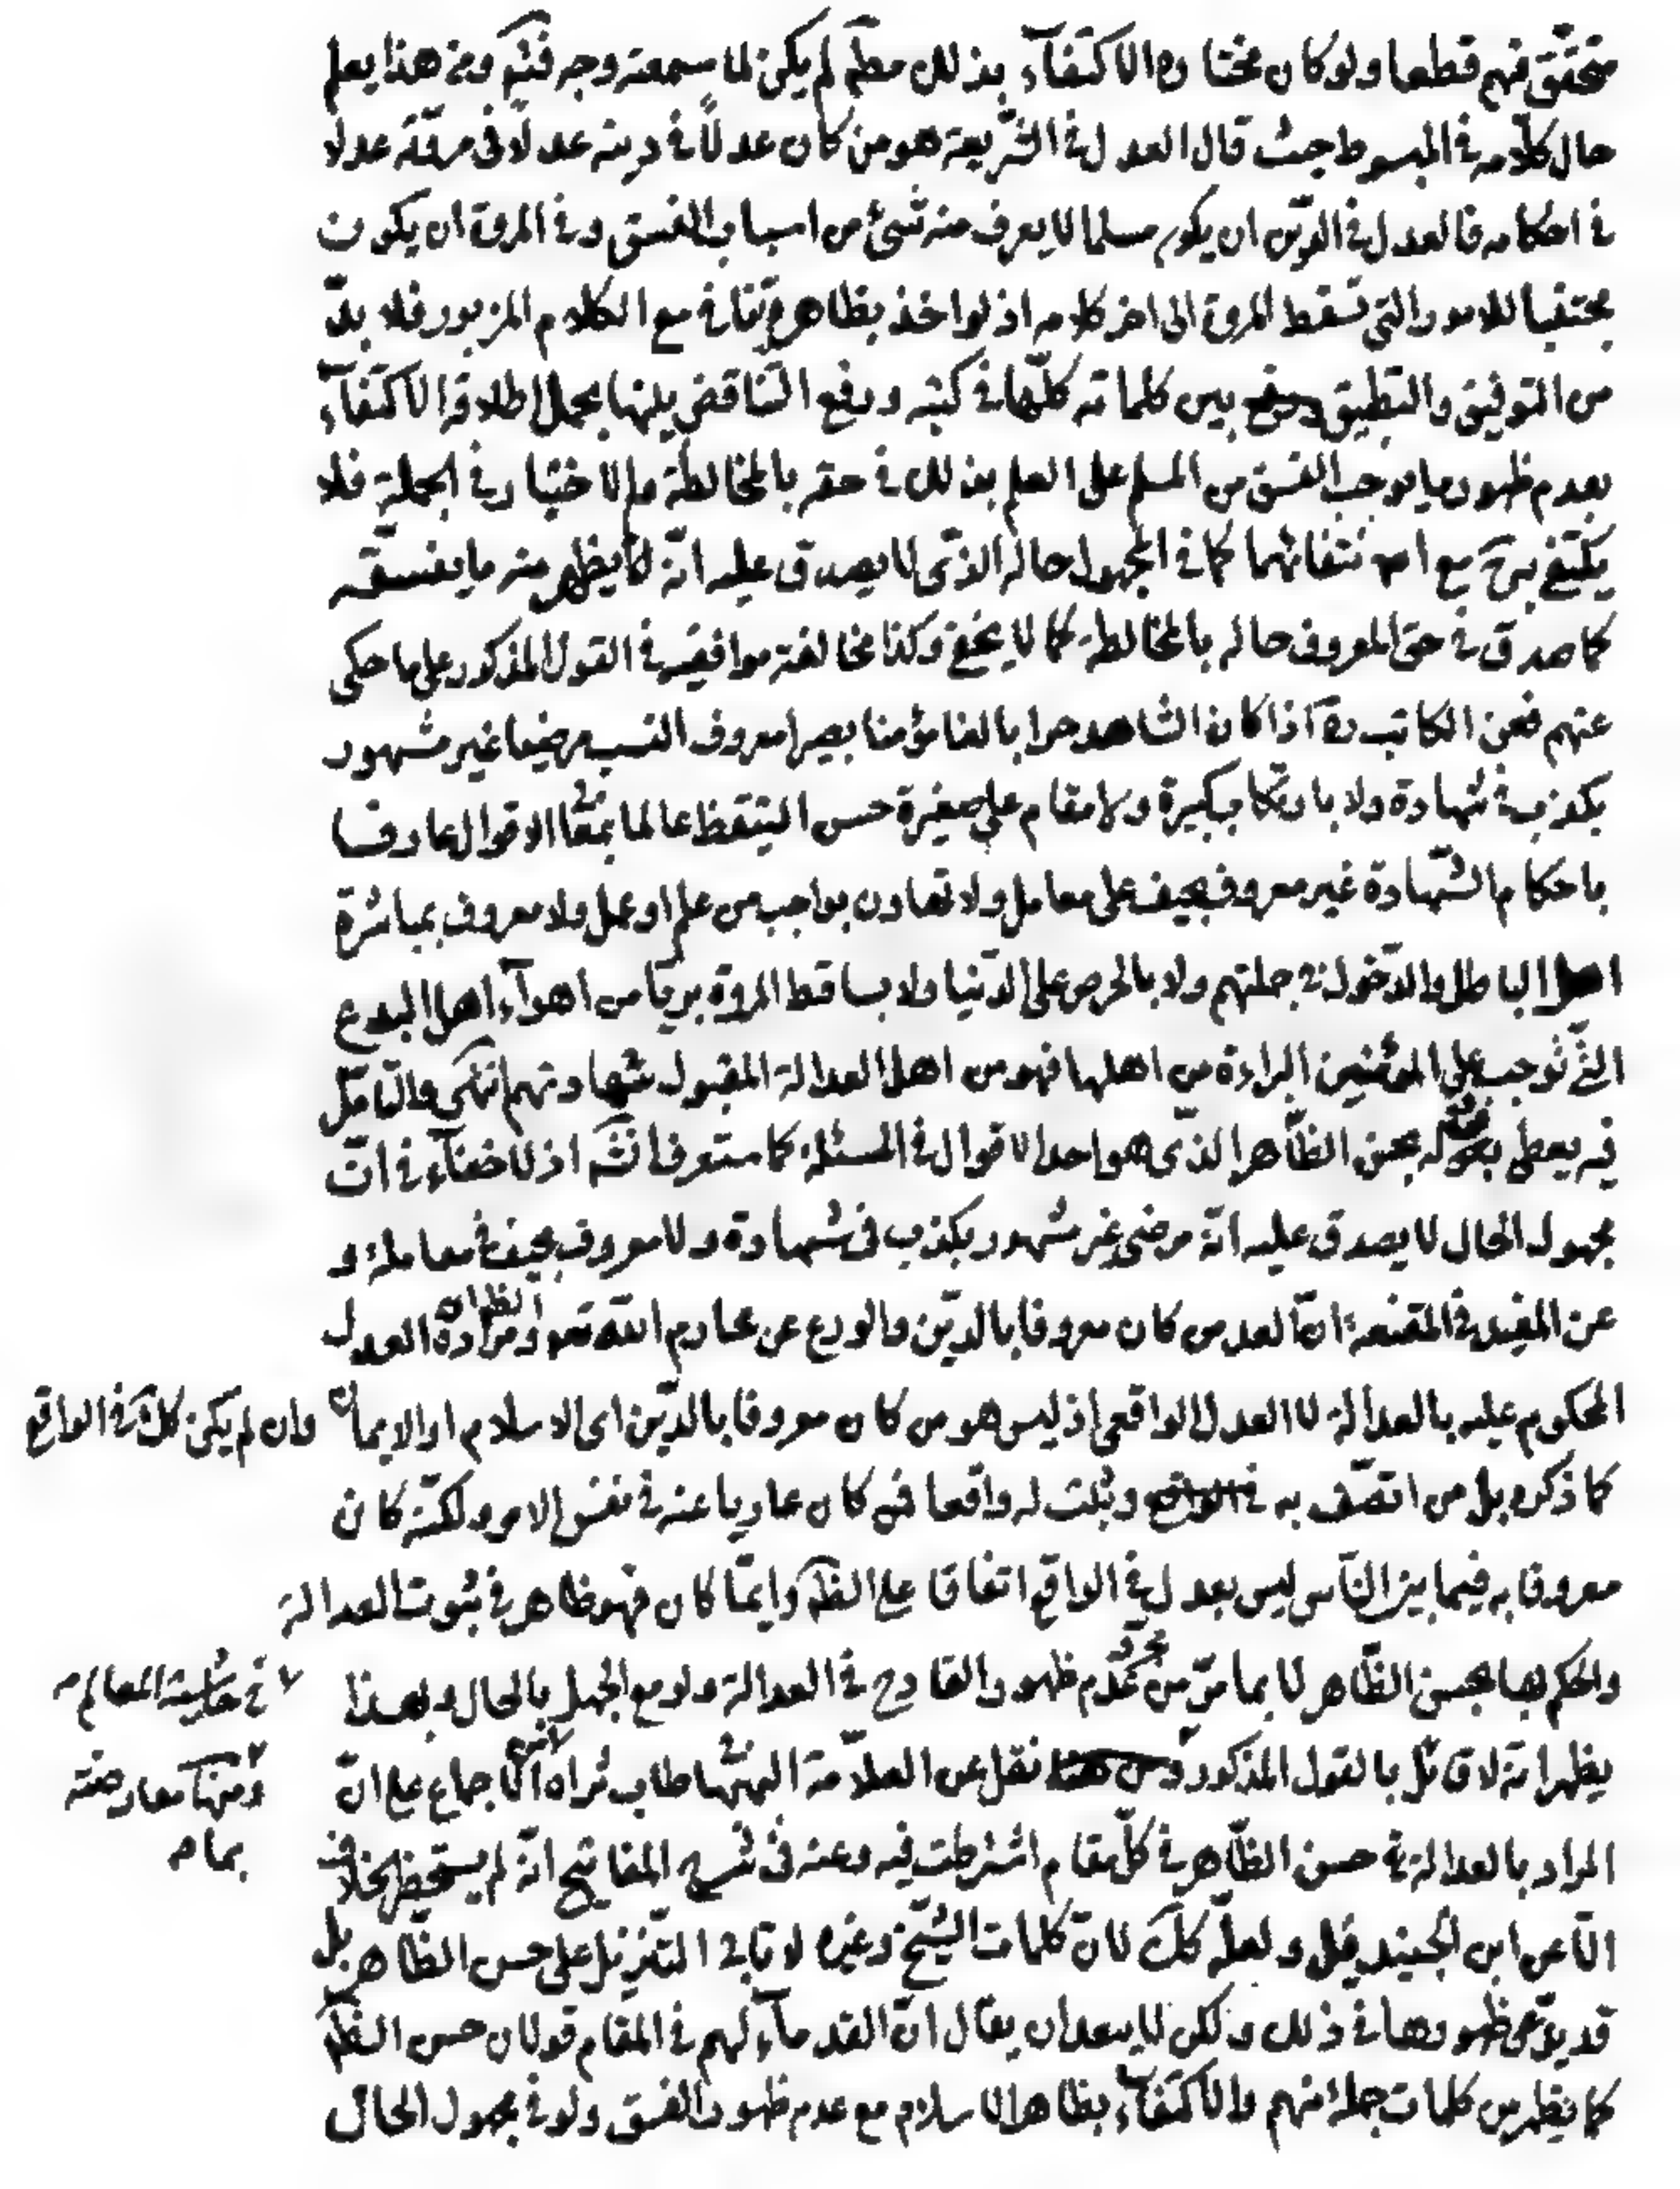 متحقق فهم قطعا ولو كان مختاره الاكتفآء بذلك مطلم لم يكن لما سمعته وجه فثبم ومن هذا يعلم
حال كلامه في المبسوط حيث قال العدل في الشريعة هو من كان عدلاً في دينه عدلاً في مروته عدلا
في احكامه فالعدل في الدّين ان يكون مسلما لا يعرف منه شئ من اسباب الفسق وفي المروة ان يكون
مجتنبا للامور التي تسقط المروة الى اخر كلامه اذ لو اخذ بظاهره تنافي مع الكلام المزبور فلا بدّ
من التوفيق والتطبيق بين كلماته كلّها في كتبه ودفع التناقض بينها بحمل اطلاقه الاكتفآء
بعدم ظهور ما يوجب الفسق من المسلم على العلم بذلك في حقه بالمخالطة والاختبار في الجملة فلا
يكتفي به مع انتفائهما كما في المجهول حاله الذي لا يصدق عليه انّه لا يظهر منه ما يفسقه
كما صدق في حق المعروف حاله بالمخالطة كما لا يخفى وكذا مخالفة موافقيه في القول المذكور على ما حكى
عنهم فعن الكاتب ره اذا كان الشاهد حرا بالغا مؤمنا بصيرا معروف النسب مرضيا غير مشهور
بكذب في شهادة ولا بارتكاب كبيرة ولا مقام على صغيرة حسن التيقظ عالما بمعاني الاقوال عارفا
باحكام الشّهادة غير معروف بحيف على معامل ولا تهاون بواجب من علم او عمل ولا معروف بمباشرة
اهل الباطل والدّخول في جملتهم ولا بالحرص على الدّنيا ولا بساقط المروة بريّا من اهوآء اهل البدع
التي توجب على المؤمنين البراءة من اهلها فهو من اهل العدالة المقبول شهادتهم انتهى والتّامّل
فيه يعطي قوله بحسن الظّاهر الذّي هو احد الاقوال في المسئلة كما ستعرف انشه اذ لا خفآء في انّ
مجهول الحال لا يصدق عليه انّه مرضى غير مشهور بكذب في شهادة ولا معروف بحيف في معاملة و
عن المفيد في المقنعة انّ العدل من كان معروفا بالدّين والورع عن محارم الله تعه والظ ان مراده العدل
المحكوم عليه بالعدالة لا العدل الواقعي اذ ليس هو من كان معروفا بالدّين اى الاسلام او الايمان وان لم يكن كك في الواقع
كما ذكره بل من اتصّف به وثبت له واقعا فمن كان عاريا عنه في نفس الامر ولكنّه كان
معروفا به فيما بين النّاس ليس بعدل في الواقع اتفاقا على الظّه وايمّا كان فهو ظاهر في ثبوت العدالة
والحكم بها بحسن الظّاهر لا بما مرّ من مجرد عدم ظهور القادح في العدالة ولو مع الجهل بالحال وبهذا
يظهر انّه لا قائل بالقول المذكور نقل عن العلاّمة البهبهاني طاب ثراه الاجماع على انّ
في حاشية المعالم
ومنها معارضته
بما مر
المراد بالعدالة حسن الظّاهر في كلّ مقام اشترطت فيه وعنه في شرح المفاتيح انّه لم يستحضر خلاف
الّا عن ابن الجنيد قيل ولعلّه كك لانّ كلمات الشّيخ وغيره لا تابى التّنزيل على حسن الظّاهر بل
قد يدّعى ظهورها في ذلك ولكن لا يبعد ان يقال انّ القدمآء لهم في المقام قولان حسن الظّه
كما يظهر من كلمات جملة منهم والاكتفآء بظاهر الاسلام مع عدم ظهور الفسق ولو في مجهول الحال